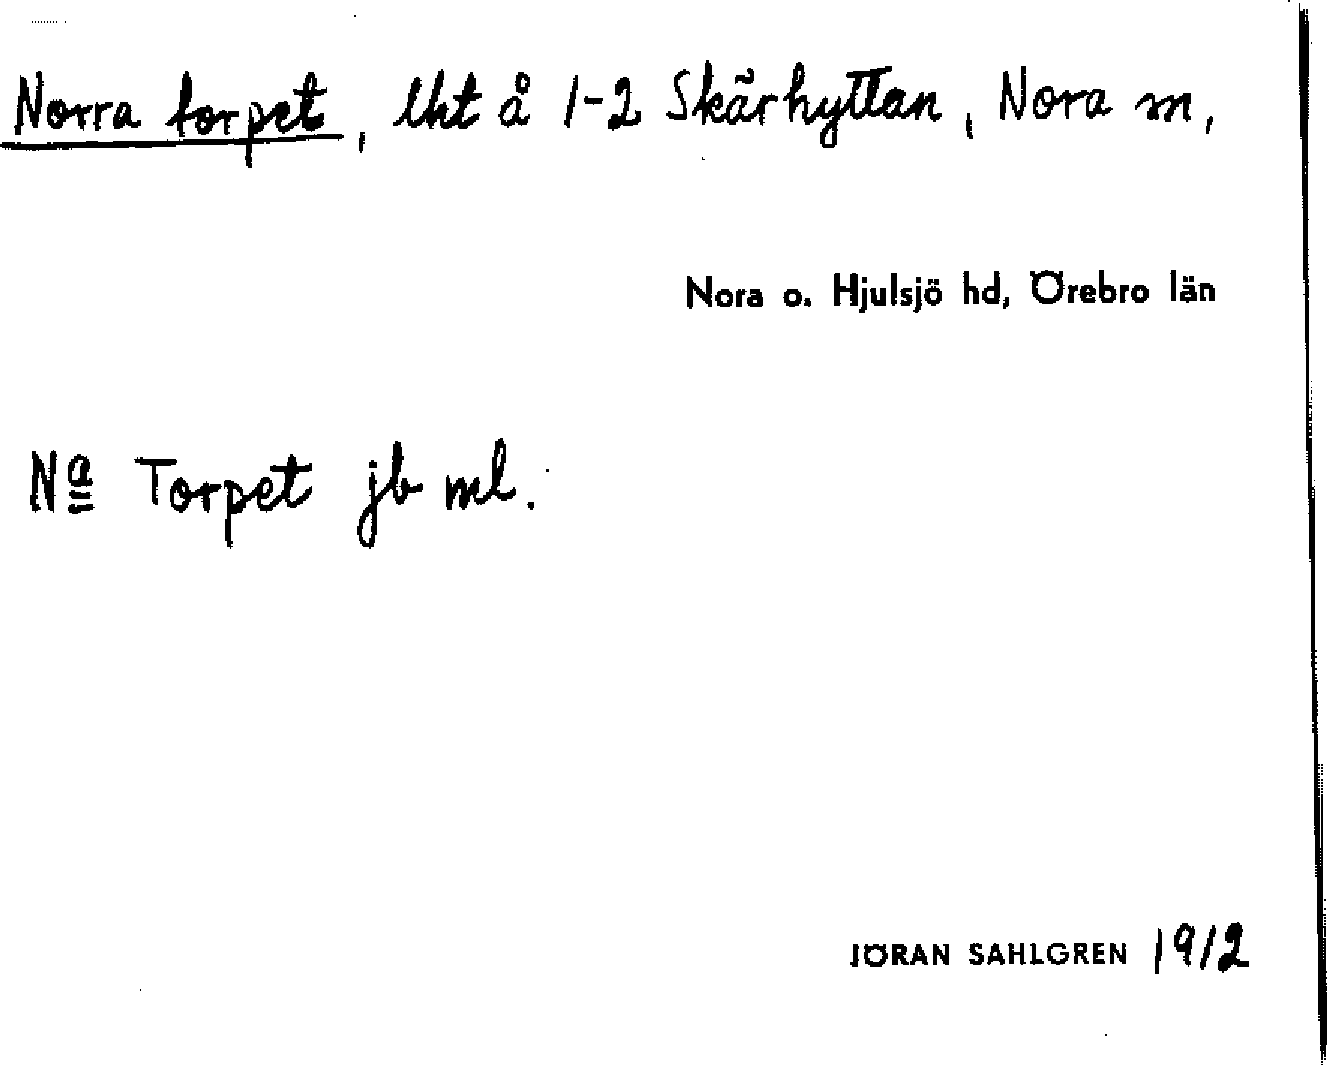 Norra torpet, lht å 1-2 Skärhyttan, Nora sn,
Nora o. Hjulsjö hd, Örebro län
Nª Torpet jb ml.
JÖRAN SAHLGREN 1912